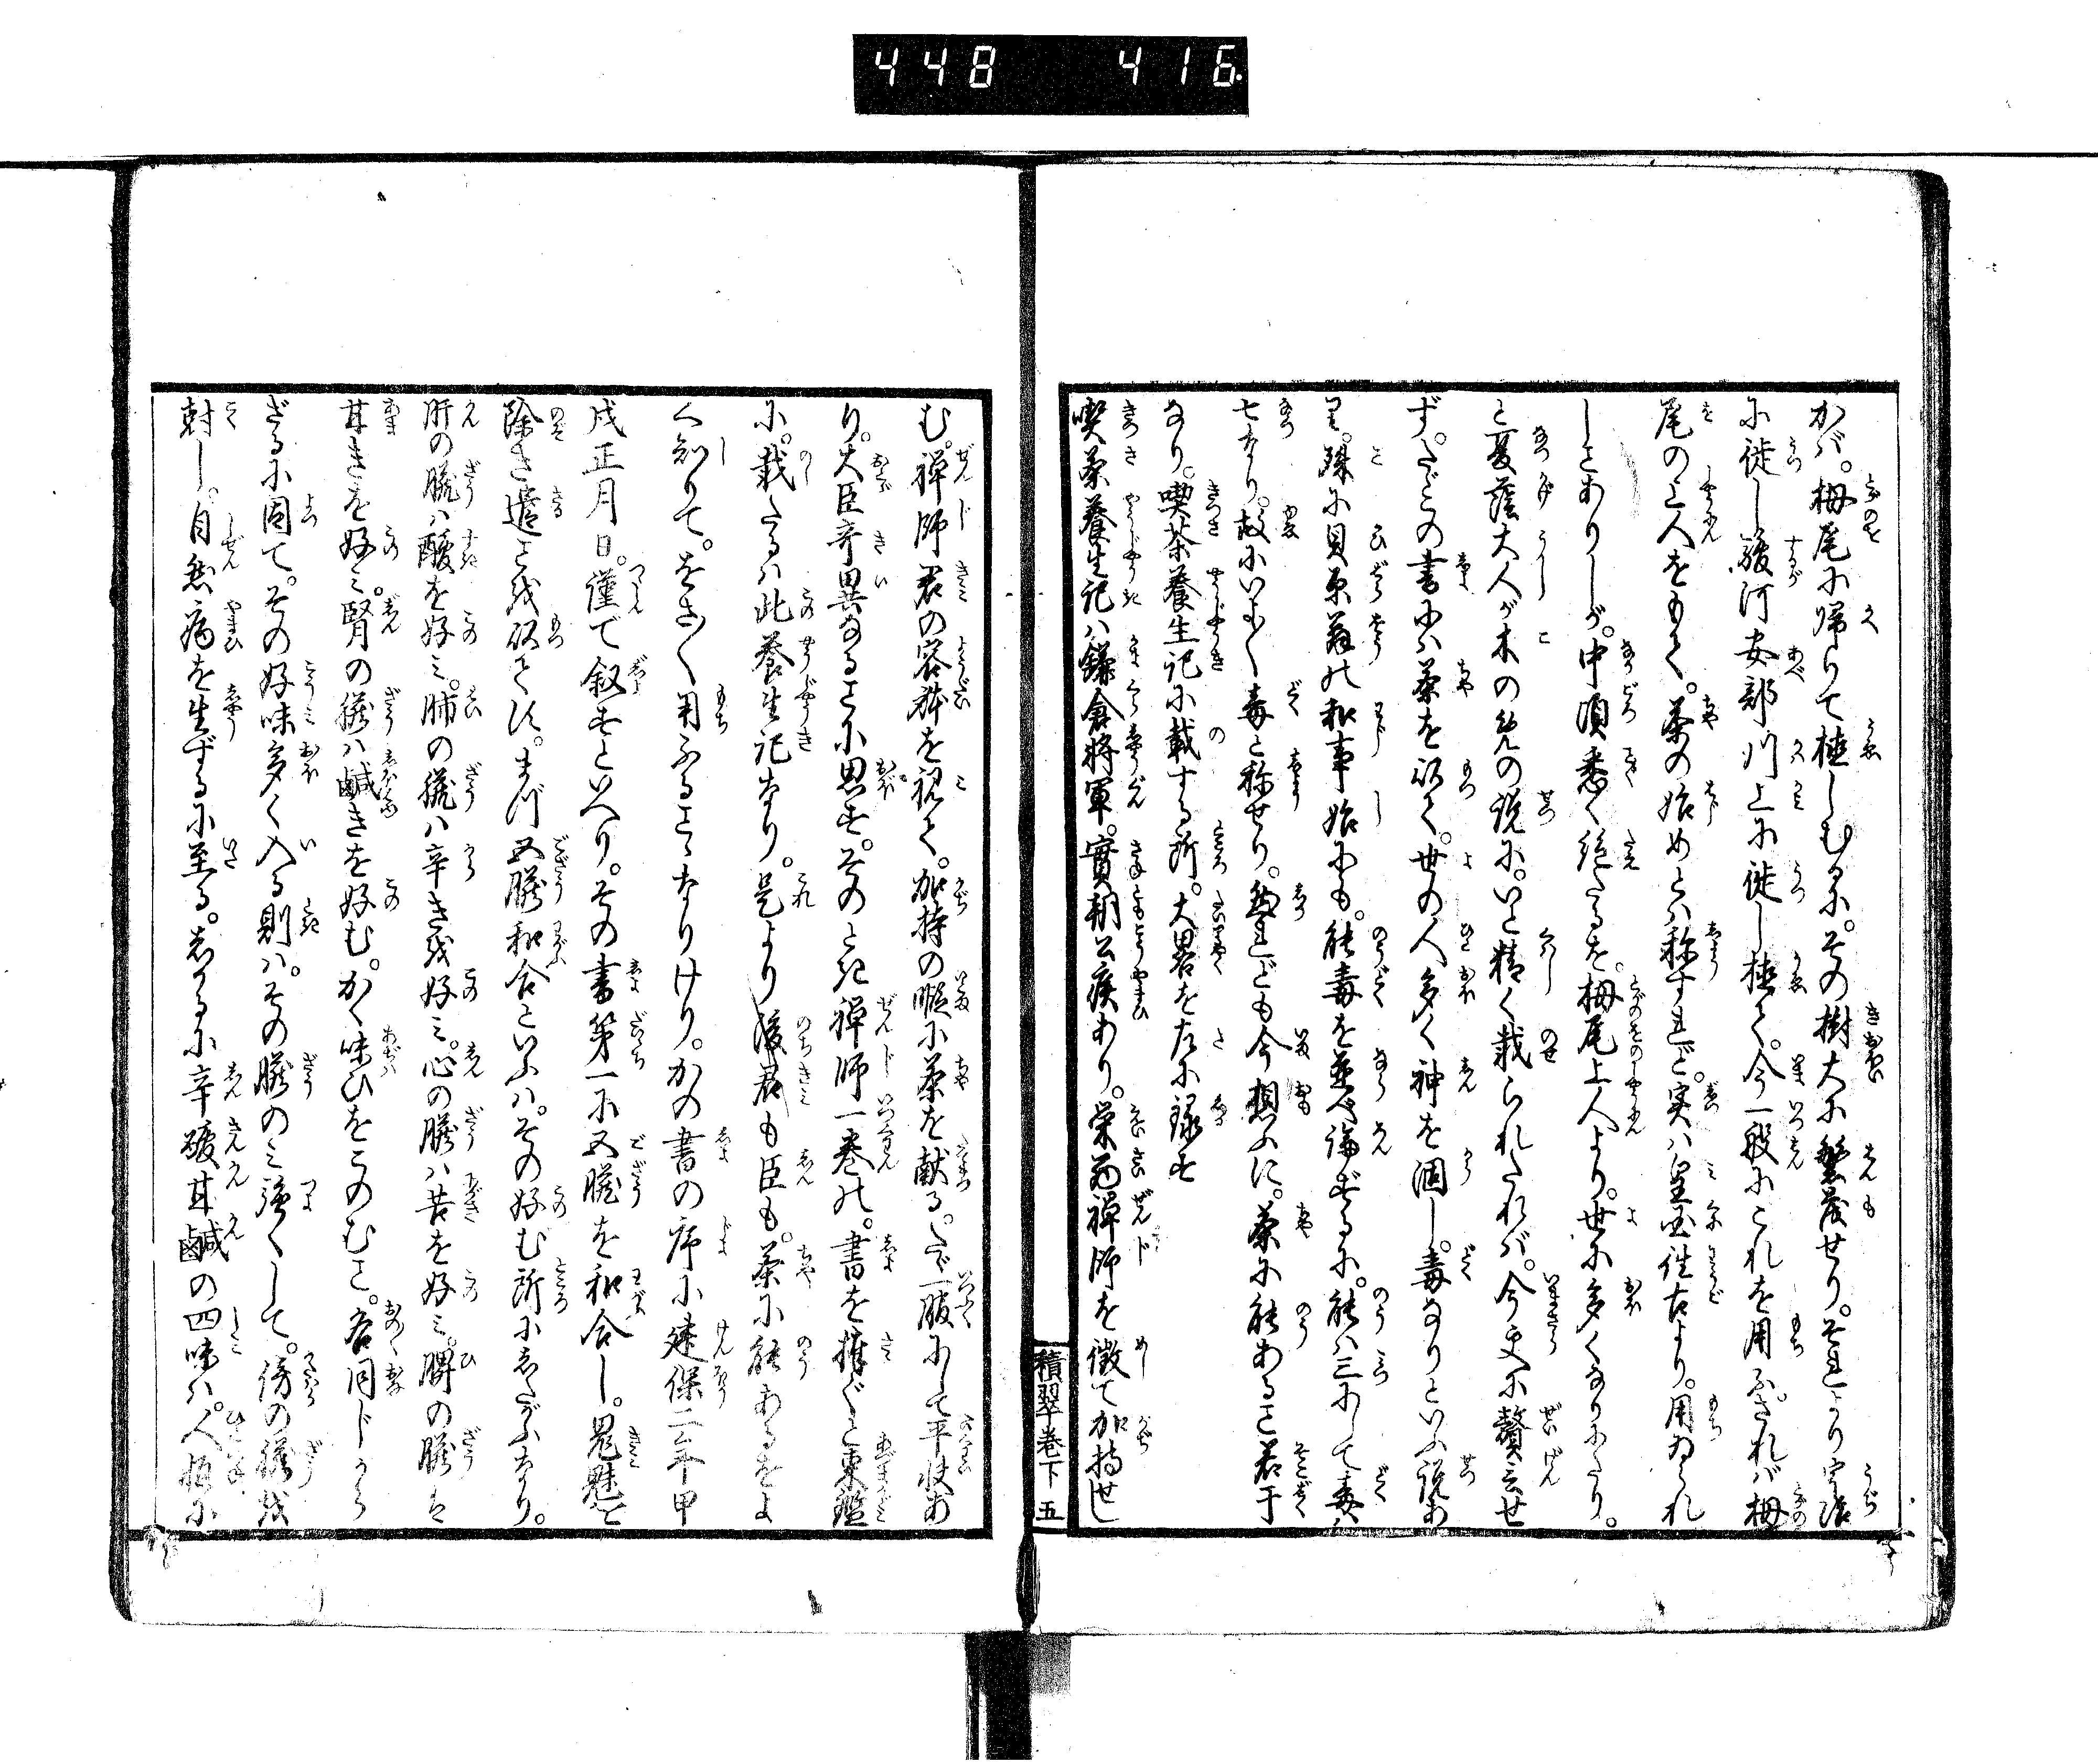 448 416
かバ。栂尾に帰りて植しむるに。その樹大に繁茂せり。それより宇治
に徙し駿河安部川上に徙し植て。今一般にこれを用ふ。されバ栂
尾の上人をもて。茶の始めとハ称すれど。実ハ皇国往古より。用ゐられ
しことありしが。中頃悉く絶たるを。栂尾上人より。世に多くなりにたり。
と夏蔭大人が木の先の説に。いと精く載られたれバ。今更に贅言せ
ず。たゞこの書にハ茶を以て。世の人多く神を涸し。毒なりといふ説あ
り。殊に貝原翁の和事始にも。能毒を並べ論ずるに。能ハ三にして毒ハ
七なり。故にいよ〳〵毒と称せり。然れども今想ふに。茶に能あること若干
なり。喫茶養生記に載する所。大畧を左に録す
喫茶養生記ハ鎌倉将軍。實朝公疾あり。栄西禅師を徴て加持せし
積翠巻下 五
む。禅師君の容躰を視て。加持の暇に茶を献る。たゞ一服にして平快あ
り。大臣奇異なることに思す。そのとき禅師一巻の。書を捧ぐと東鑑
に。載たるハ此養生記なり。是より後君も臣も。茶に能あるをよ
く知りて。をさ〳〵用ふることゝなりけり。かの書の序に建保二年甲
戌正月日。謹で叙すといへり。その書第一に五臓を和合し。鬼魅を
除き遣とを以てす。まづ五臓和合といふハ。その好む所にしたがふなり。
肝の臓ハ酸を好ミ。肺の臓ハ辛きを好ミ。心の臓ハ苦を好ミ。脾の臓は
甘きを好ミ。腎の臓ハ鹹きを好む。かく味ひをこのむこと。各同じから
ざるに因て。その好味多く入る則ハ。その臓のミ強くして。傍の臓を
尅し。自然病を生ずるに至る。しかるに辛酸甘鹹の四味ハ。人恒に